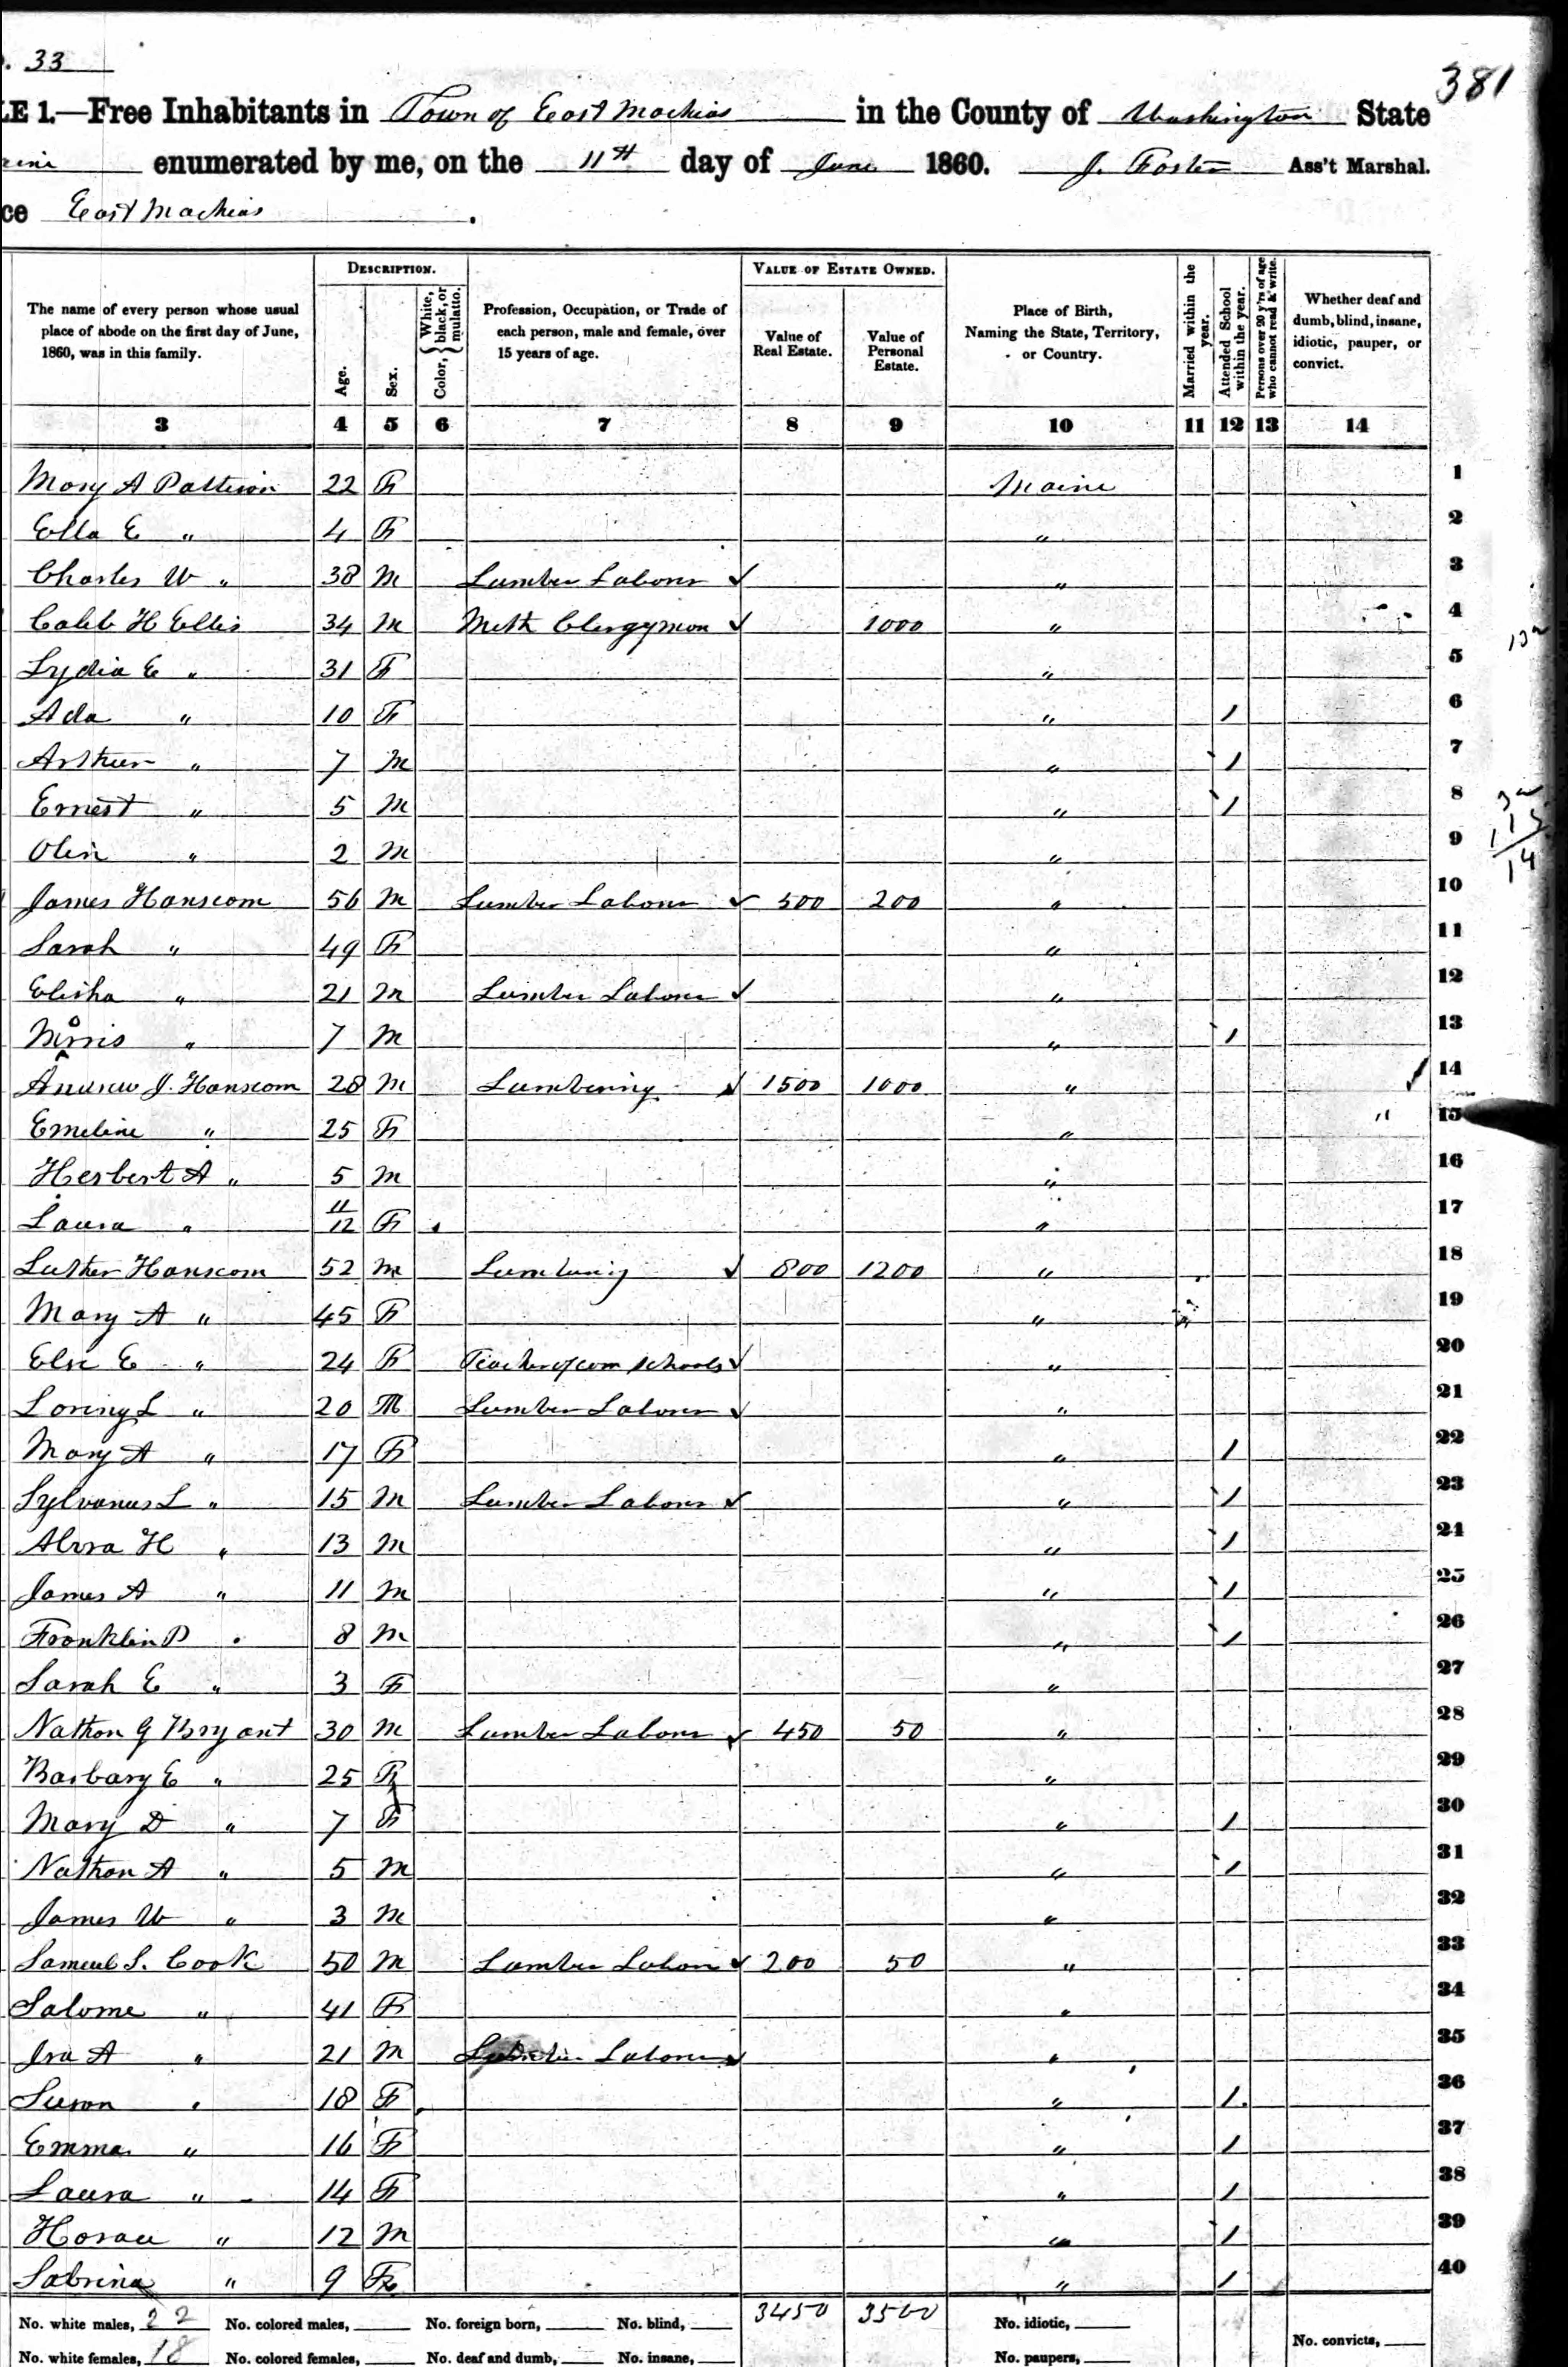 . 33
381
LE 1.—Free Inhabitants in Town of East Machias in the County of Washington State
aine enumerated by me, on the 11th day of June 1860. J. Foster Ass't Marshal.
ce East Machias .
DESCRIPTION. VALUE OF ESTATE OWNED.
The name of every person whose usual place of abode on the first day of June, 1860, was in this family.
Age.
Sex.
Color, { White, black, or mulatto.
Profession, Occupation, or Trade of each person, male and female, over 15 years of age.
Value of Real Estate.
Value of Personal Estate.
Place of Birth, Naming the State, Territory, or Country.
Married within the year.
Attended School within the year.
Persons over 20 y'rs of age who cannot read & write.
Whether deaf and dumb, blind, insane, idiotic, pauper, or convict.
3 4 5 6 7 8 9 10 11 12 13 14
Mary A Patterson 22 F Maine 1
Ella E " 4 F " 2
Charles W " 38 M Lumber Laborer " 3
Caleb H Ellis 34 M Meth Clergyman 1000 " 4
Lydia E " 31 F " 5
Ada " 10 F " / 6
Arthur " 7 M " / 7
Ernest " 5 M " / 8
Olin " 2 M " 9
James Hanscom 56 M Lumber Laborer 500 200 " 10
Sarah " 49 F " 11
Elisha " 21 M Lumber Laborer " 12
Morris " 7 M " / 13
Andrew J. Hanscom 28 M Lumbering 1500 1000 " 14
Emeline " 25 F " 15
Herbert A " 5 M " 16
Laura " 11/12 F " 17
Luther Hanscom 52 M Lumbering 800 1200 " 18
Mary A " 45 F " 19
Elsie E " 24 F Teacher of com schools " 20
Loring L " 20 M Lumber Laborer " 21
Mary A " 17 F " / 22
Sylvanus L " 15 M Lumber Laborer " / 23
H " 13 M " / 24
James A " 11 M " / 25
Franklin P " 8 M " / 26
Sarah E " 3 F " 27
Nathan G Bryant 30 M Lumber Laborer 450 50 " 28
Barbary E " 25 F " 29
Mary D " 7 F " / 30
Nathan A " 5 M " / 31
James W " 3 M " 32
Samuel S. Cook 50 M Lumber Labor 200 50 " 33
Salome " 41 F " 34
Ira A " 21 M Lumber Laborer " 35
Susan " 18 F " / 36
Emma " 16 F " / 37
Laura " 14 F " / 38
Horace " 12 M " / 39
Sabrina " 9 F " / 40
No. white males, 22 No. colored males, No. foreign born, No. blind, 3450 3500 No. idiotic, No. convicts,
No. white females, 18 No. colored females, No. deaf and dumb, No. insane, No. paupers,